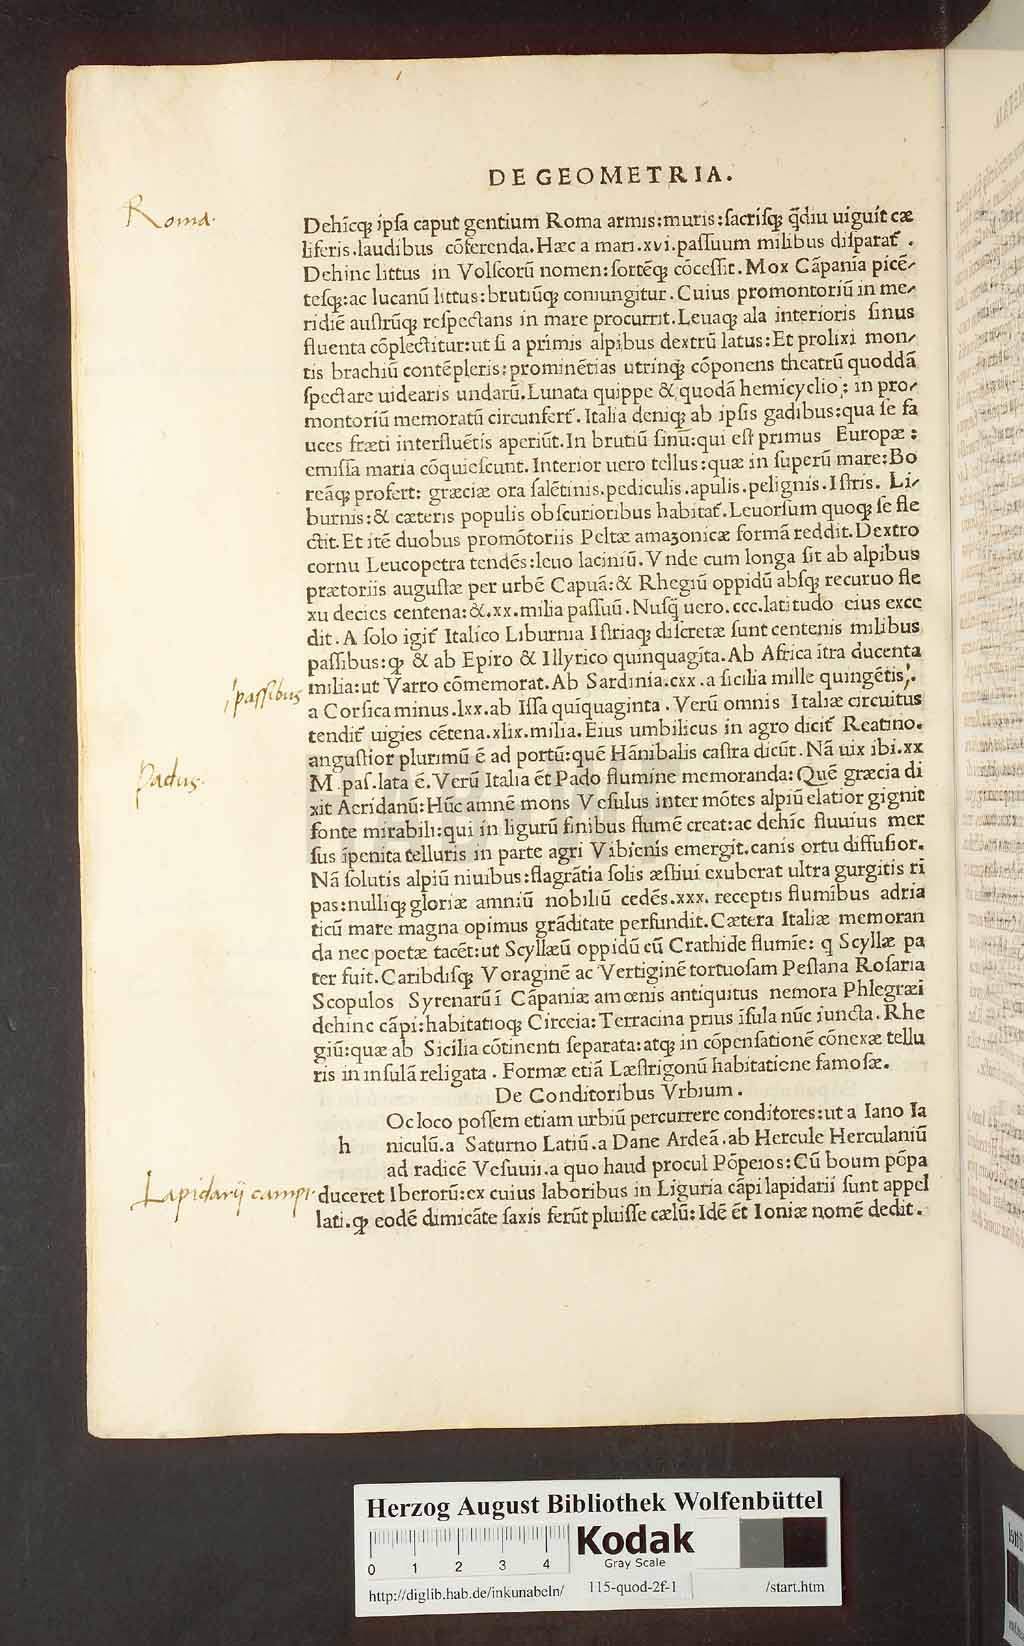 DE GEOMETRIA.
Roma.
Dehīcq; ipſa caput gentium Roma armis:muris:ſacriſq; q̄diu uiguit cæ
liferis.laudibus cōferenda.Hæc a mari.xvi.paſſuum milibus diſparat᷑.
Dehinc littus in Volſcorū nomen:ſortēq; cōceſſit.Mox Cāpania picē-
teſq;:ac lucanū littus:brutiūq; coniungitur.Cuius promontoriū in me-
ridiē auſtrūq; reſpectans in mare procurrit.Leuaq; ala interioris ſinus
fluenta cōplectitur:ut ſi a primis alpibus dextrū latus:Et prolixi mon-
tis brachiū contēpleris:prominētias utrinq; cōponens theatrū quoddā
ſpectare uidearis undarū.Lunata quippe & quodā hemicyclio: in pro-
montoriū memoratū circunfert᷑.Italia deniq; ab ipſis gadibus:qua ſe fa
uces fræti interfluētis aperiūt.In brutiū ſinū:qui eſt primus Europæ:
emiſſa maria cōquieſcunt.Interior uero tellus:quæ in ſuperū mare:Bo
reāq; profert: græciæ ora ſalētinis.pediculis.apulis.pelignis.Iſtris. Li-
burnis:& cæteris populis obſcurioribus habitat᷑.Leuorſum quoq; ſe fle
ctit.Et itē duobus promōtoriis Peltæ amazonicæ formā reddit.Dextro
cornu Leucopetra tendēs:leuo laciniū.Vnde cum longa ſit ab alpibus
prætoriis auguſtæ per urbē Capuā:& Rhegiū oppidū abſq; recuruo fle
xu decies centena:&.xx.milia paſſuū.Nuſq̄ uero.ccc.latitudo eius exce
dit.A ſolo igit᷑ Italico Liburnia Iſtriaq; diſcretæ ſunt centenis milibus
paſſibus:q; & ab Epiro & Illyrico quinquagīta.Ab Africa itra ducenta
milia:ut Varro cōmemorat.Ab Sardinia.cxx.a ſicilia mille quingētis.
passibus
a Corſica minus.lxx.ab Iſſa quiquaginta.Verū omnis Italiæ circuitus
tendit᷑ uigies cētena.xlix.milia.Eius umbilicus in agro dicit᷑ Reatino.
anguſtior plurimū ē ad portū:quē Hānibalis caſtra dicūt.Nā uix ibi.xx
Padus.
M.paſ.lata ē.Verū Italia ēt Pado flumine memoranda:Quē græcia di
xit Aeridanū:Hūc amnē mons Veſulus inter mōtes alpiū elatior gignit
fonte mirabili:qui in ligurū finibus flumē creat:ac dehīc fluuius mer
ſus īpenita telluris in parte agri Vibienis emergit.canis ortu diffuſior.
Nā ſolutis alpiū niuibus:flagrātia ſolis æſtiui exuberat ultra gurgitis ri
pas:nulliq; gloriæ amniū nobiliū cedēs.xxx.receptis flumībus adria
ticū mare magna opimus grāditate perfundit.Cætera Italiæ memoran
da nec poetæ tacēt:ut Scyllæū oppidū cū Crathide flumīe: q Scyllæ pa
ter fuit.Caribdiſq; Voraginē ac Vertiginē tortuoſam Peſtana Roſaria
Scopulos Syrenarū ī Cāpaniæ amœnis antiquitus nemora Phlegræi
dehinc cāpi:habitatioq; Circeia:Terracina prius īſula nūc iuncta.Rhe
giū:quæ ab Sicilia cōtinenti ſeparata:atq; in cōpenſationē cōnexæ tellu
ris in inſulā religata.Formæ etiā Læſtrigonū habitatione famoſæ.
De Conditoribus Vrbium.
Oc loco poſſem etiam urbiū percurrere conditores:ut a Iano Ia
h niculū.a Saturno Latiū.a Dane Ardeā.ab Hercule Herculaniū
ad radicē Veſuuii.a quo haud procul Pōpeios:Cū boum pōpa
Lapidarij campi.
duceret Iberorū:ex cuius laboribus in Liguria cāpi lapidarii ſunt appel
lati.q; eodē dimicāte ſaxis ferūt pluiſſe cælū:Idē ēt Ioniæ nomē dedit.
HAB WF
Herzog August Bibliothek Wolfenbüttel
Kodak
Gray Scale
0 1 2 3 4
http://diglib.hab.de/inkunabeln/ 115-quod-2f-1 /start.htm